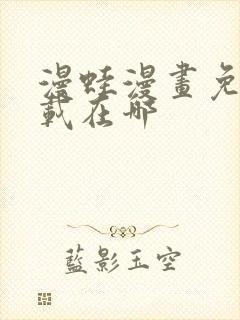 漫蛙漫畫免
載在哪
藍影玉空